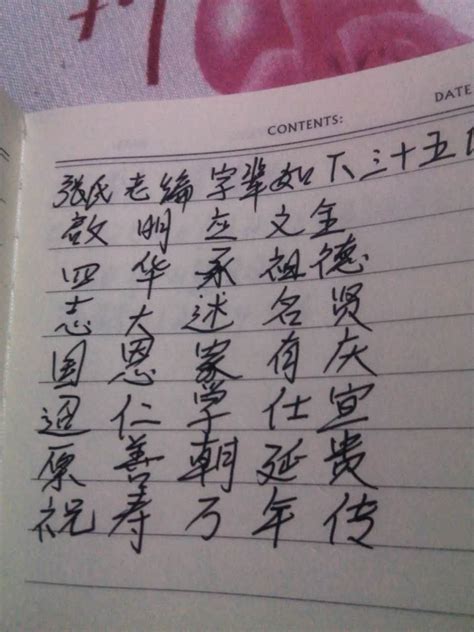 CONTENTS: DATE
张氏老编字辈如下三十五
啟明应文全
四华承祖德
志大述名贤
国恩家有庆
仁学仕宣
原善朝延贵
祝寿万年传